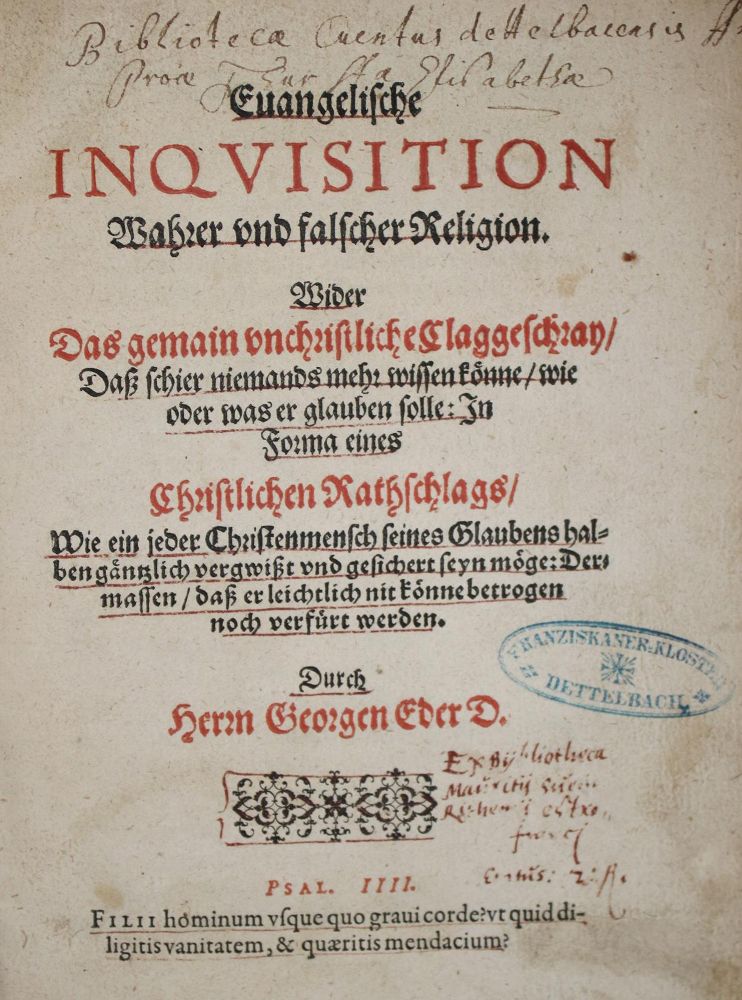 Bibliotecæ Cuentus dettelbacensis
Euangelische
INQVISITION
Wahrer vnd falscher Religion.
Wider
Das gemain vnchristliche Claggeschray/
Daß schier niemands mehr wissen könne/ wie
oder was er glauben solle: In
Forma eines
Christlichen Rathschlags/
Wie ein jeder Christenmensch seines Glaubens hal-
ben gäntzlich vergwißt vnd gesichert seyn möge: Der-
massen/ daß er leichtlich nit könne betrogen
noch verfürt werden.
FRANZISKANER-KLOSTER
DETTELBACH
Durch
Herrn Georgen Eder D.
Ex Bybliotheca
Mauritii
PSAL. IIII.
FILII hominum vsque quo graui corde? vt quid di-
ligitis vanitatem, & quæritis mendacium?